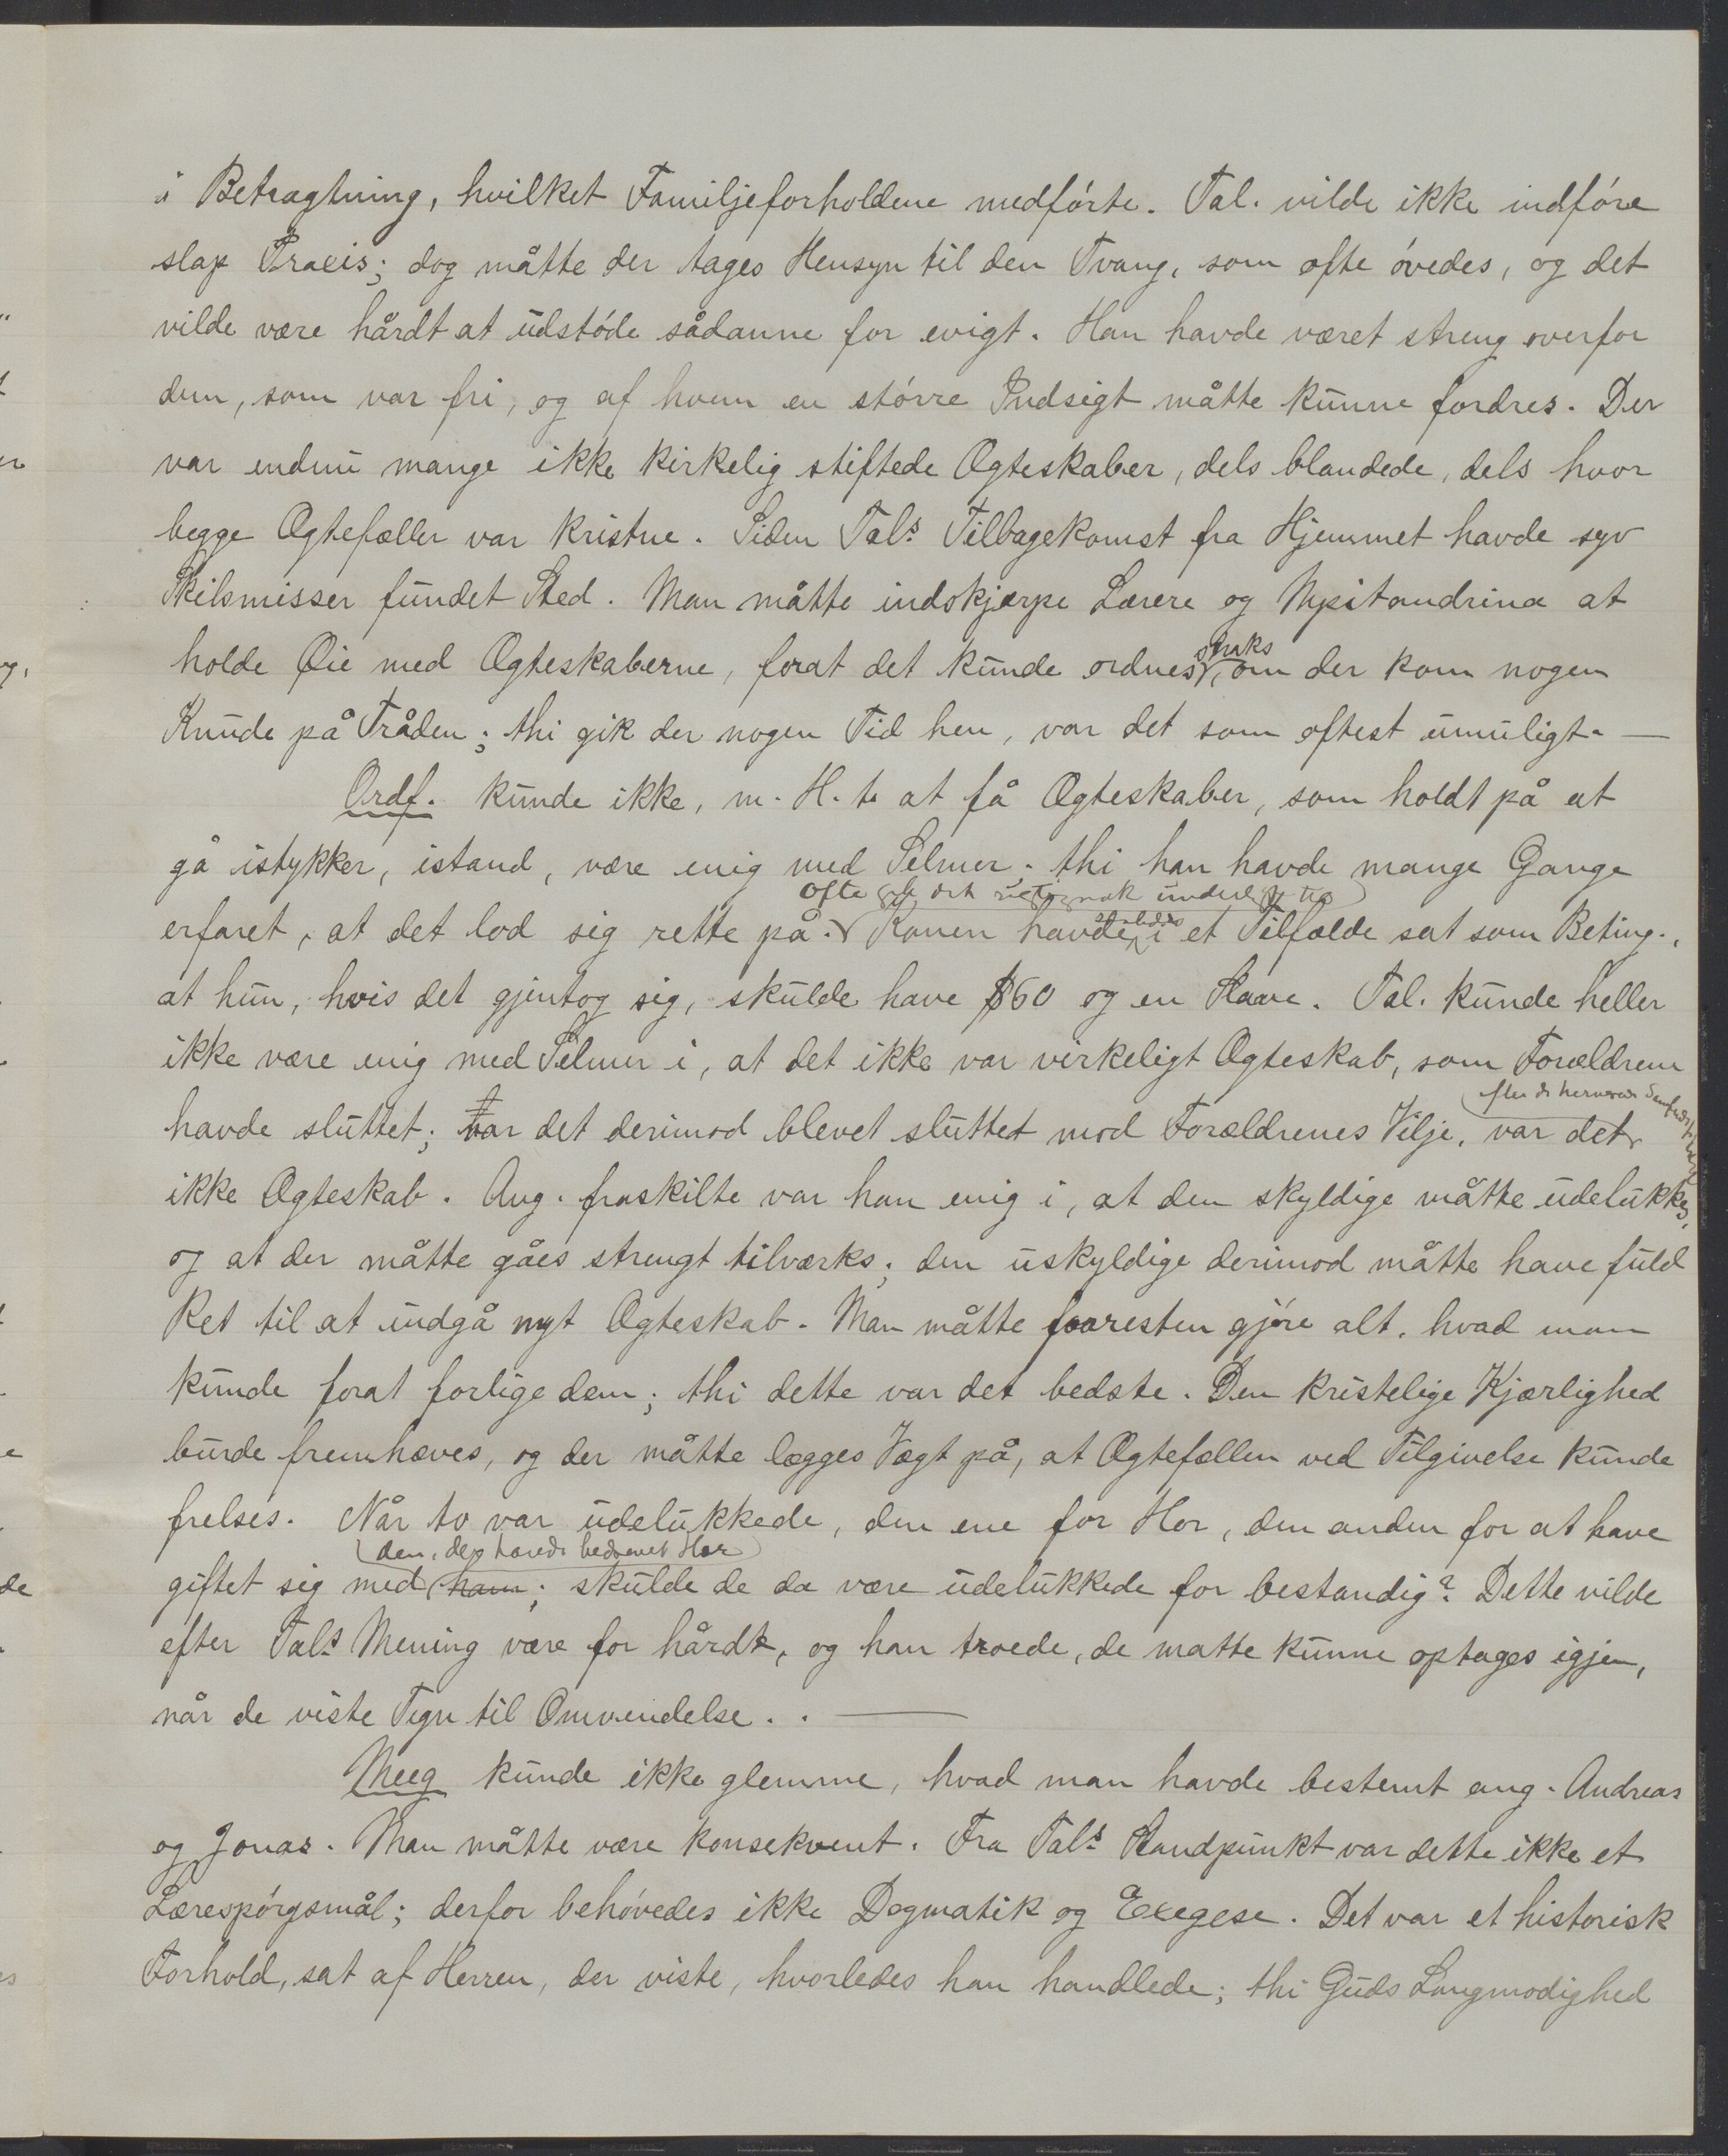 i Betragtning, hvilket Familjeforholdene medførte. Tal. vilde ikke indføre
slap Praxis; dog måtte der tages Hensyn til den Tvang, som ofte øvedes, og det
vilde være hårdt at udstøde sådanne for evigt. Han havde været streng overfor
dem, som var fri, og af hvem en større Indsigt måtte kunne fordres. Der
var endnu mange ikke kirkelig stiftede Ægteskaber, dels blandede, dels hvor
begge Ægtefæller var kristne. Siden Tals Tilbagekomst fra Hjemmet havde syv
Skilsmisser fundet Sted. Man måtte indskjærpe Lærere og Mpitandrina at
holde Øie med Ægteskaberne, forat det kunde ordnes straks, om der kom nogen
Knude på Tråden; thi gik der nogen Tid hen, var det som oftest umuligt. —
Ordf. kunde ikke, m. H. t. at få Ægteskaber, som holdt på at
gå istykker, istand, være enig med Selmer; thi han havde mange Gange
ofte
erfaret, at det lod sig rette på. Konen havde i et Tilfælde sat som Beting.,
at hun, hvis det gjentog sig, skulde have $60 og en Slave. Tal. kunde heller
ikke være enig med Selmer i, at det ikke var virkeligt Ægteskab, som Forældrene
havde sluttet; var det derimod blevet sluttet mod Forældrenes Vilje, var det
ikke Ægteskab. Ang. fraskilte var han enig i, at den skyldige måtte udelukkes,
og at der måtte gåes strengt tilværks; den uskyldige derimod måtte have fuld
Ret til at indgå nyt Ægteskab. Man måtte forresten gjøre alt, hvad man
kunde forat forlige dem; thi dette var det bedste. Den kristelige Kjærlighed
burde fremhæves, og der måtte lægges Vægt på, at Ægtefællen ved Tilgivelse kunde
frelses. Når to var udelukkede, den ene for Hor, den anden for at have
den, der havde bedrevet Hor
giftet sig med ham; skulde de da være udelukkede for bestandig? Dette vilde
efter Tals Mening være for hårdt, og han troede, de matte kunne optages igjen,
når de viste Tegn til Omvendelse. . —
Meeg kunde ikke glemme, hvad man havde bestemt ang. Andreas
og Jonas. Man måtte være konsekvent. Fra Tals Standpunkt var dette ikke et
Lærespørgsmål; derfor behøvedes ikke Dogmatik og Exegese. Det var et historisk
Forhold, sat af Herren, der viste, hvorledes han handlede; thi Guds Langmodighed